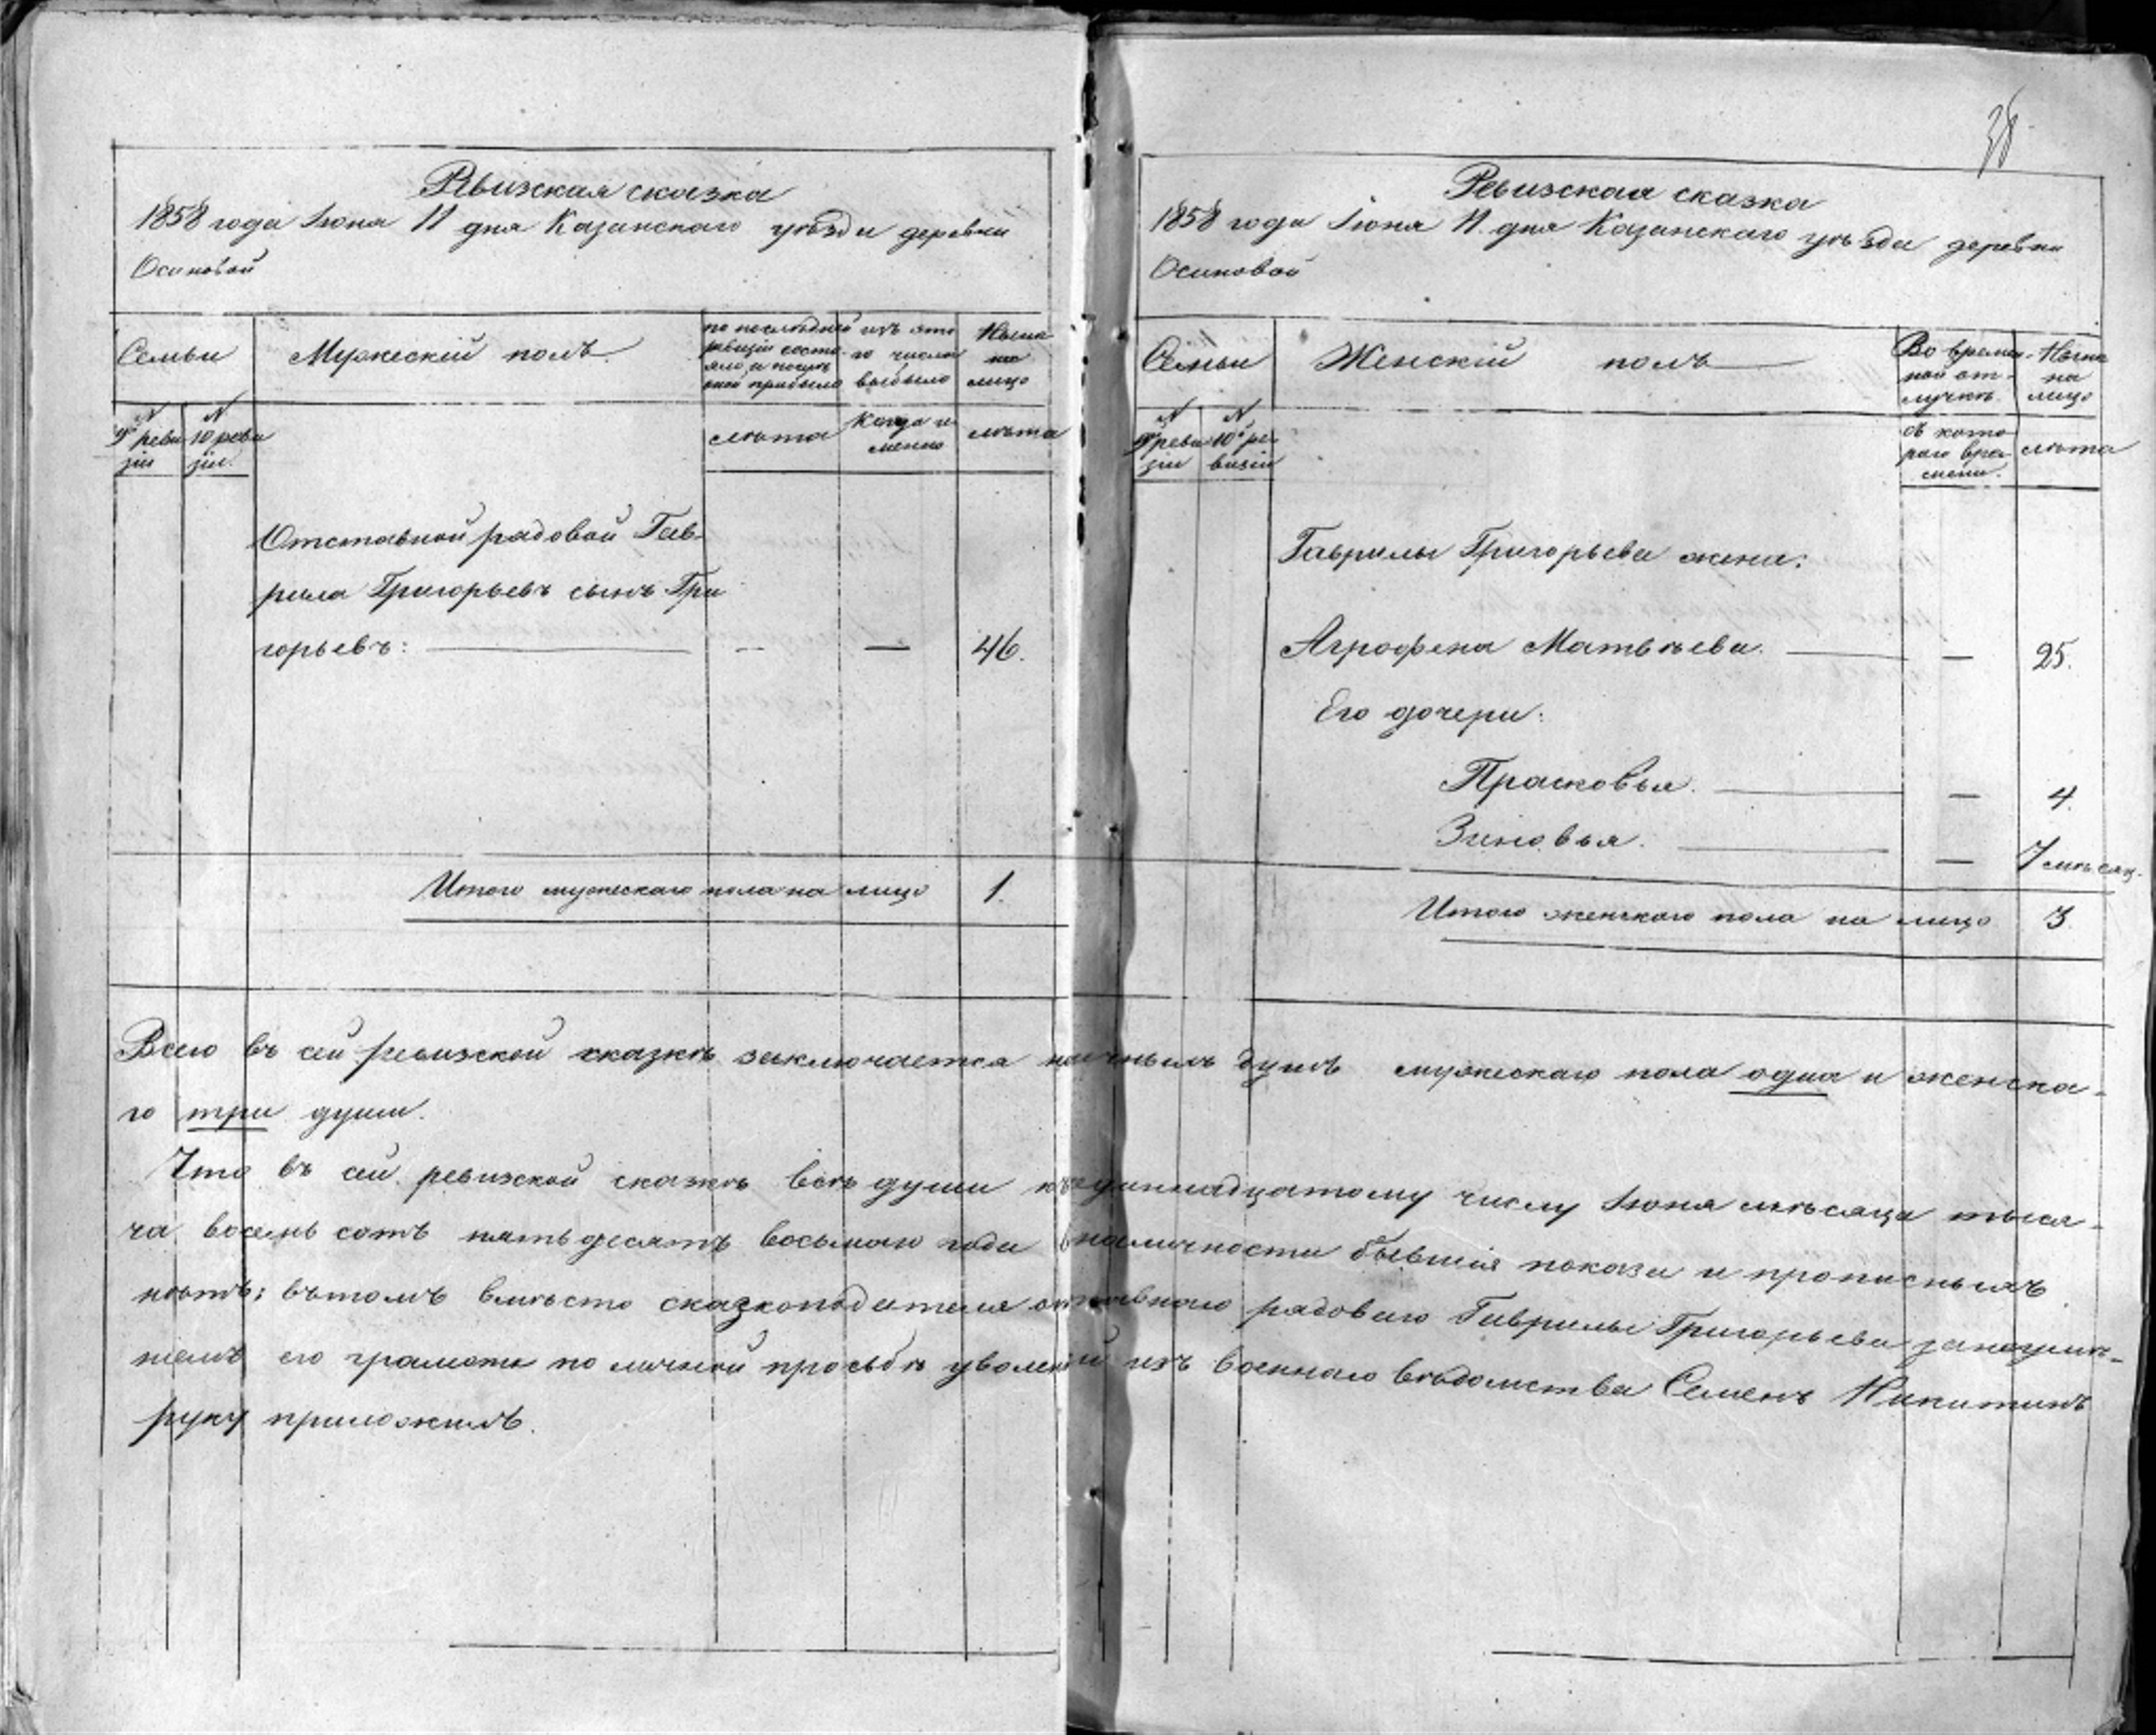 38
Ревизская сказка
1858 года Іюня 11 дня Казанскаго уѣзда деревни
Осиновой
Семьи
Мужескій полъ
по послѣдней
ревизіи состо
яло и послѣ
оной прибыло
изъ это
го числа
выбыло
Нынѣ
на
лицо
N
9й реви
зіи
N
10 реви
зіи.
лѣта
Когда и
менно
лѣта
Отставной рядовой Гав
рила Григорьевъ сынъ Гри
горьевъ: — — — 46.
Итого мужескаго пола на лицо 1.
Ревизская сказка
1858 года Іюня 11. дня Казанскаго уѣзда деревни
Осиновой
Семьи
Женскій полъ
Во времен-
ной от-
лучкѣ.
Нынѣ
на
лицо
N
9й реви
зіи
N
10й ре
визіи
съ кото
раго вре
мени.
лѣта
Гаврилы Григорьева жена:
Агрофена Матвѣева. — — 25.
Его дочери:
Прасковья. — — 4.
Зиновья. — — 7 мѣсяц.
Итого женскаго пола на лицо 3
Всего въ сей ревизской сказкѣ заключается наличныхъ душъ мужескаго пола одна и женска-
го три души.
Что въ сей ревизской сказкѣ всѣ души къ одиннадцатому числу Іюня мѣсяца тыся-
ча восемь сотъ пятьдесятъ восьмаго года въ наличности бывшія показаны и прописныхъ
нѣтъ; въ томъ вмѣсто сказкоподателя отставнаго рядоваго Гаврилы Григорьева за неумѣ-
ніемъ его грамоты по личной просьбѣ уволенный изъ военнаго вѣдомства Семенъ Никитинъ
руку приложилъ.